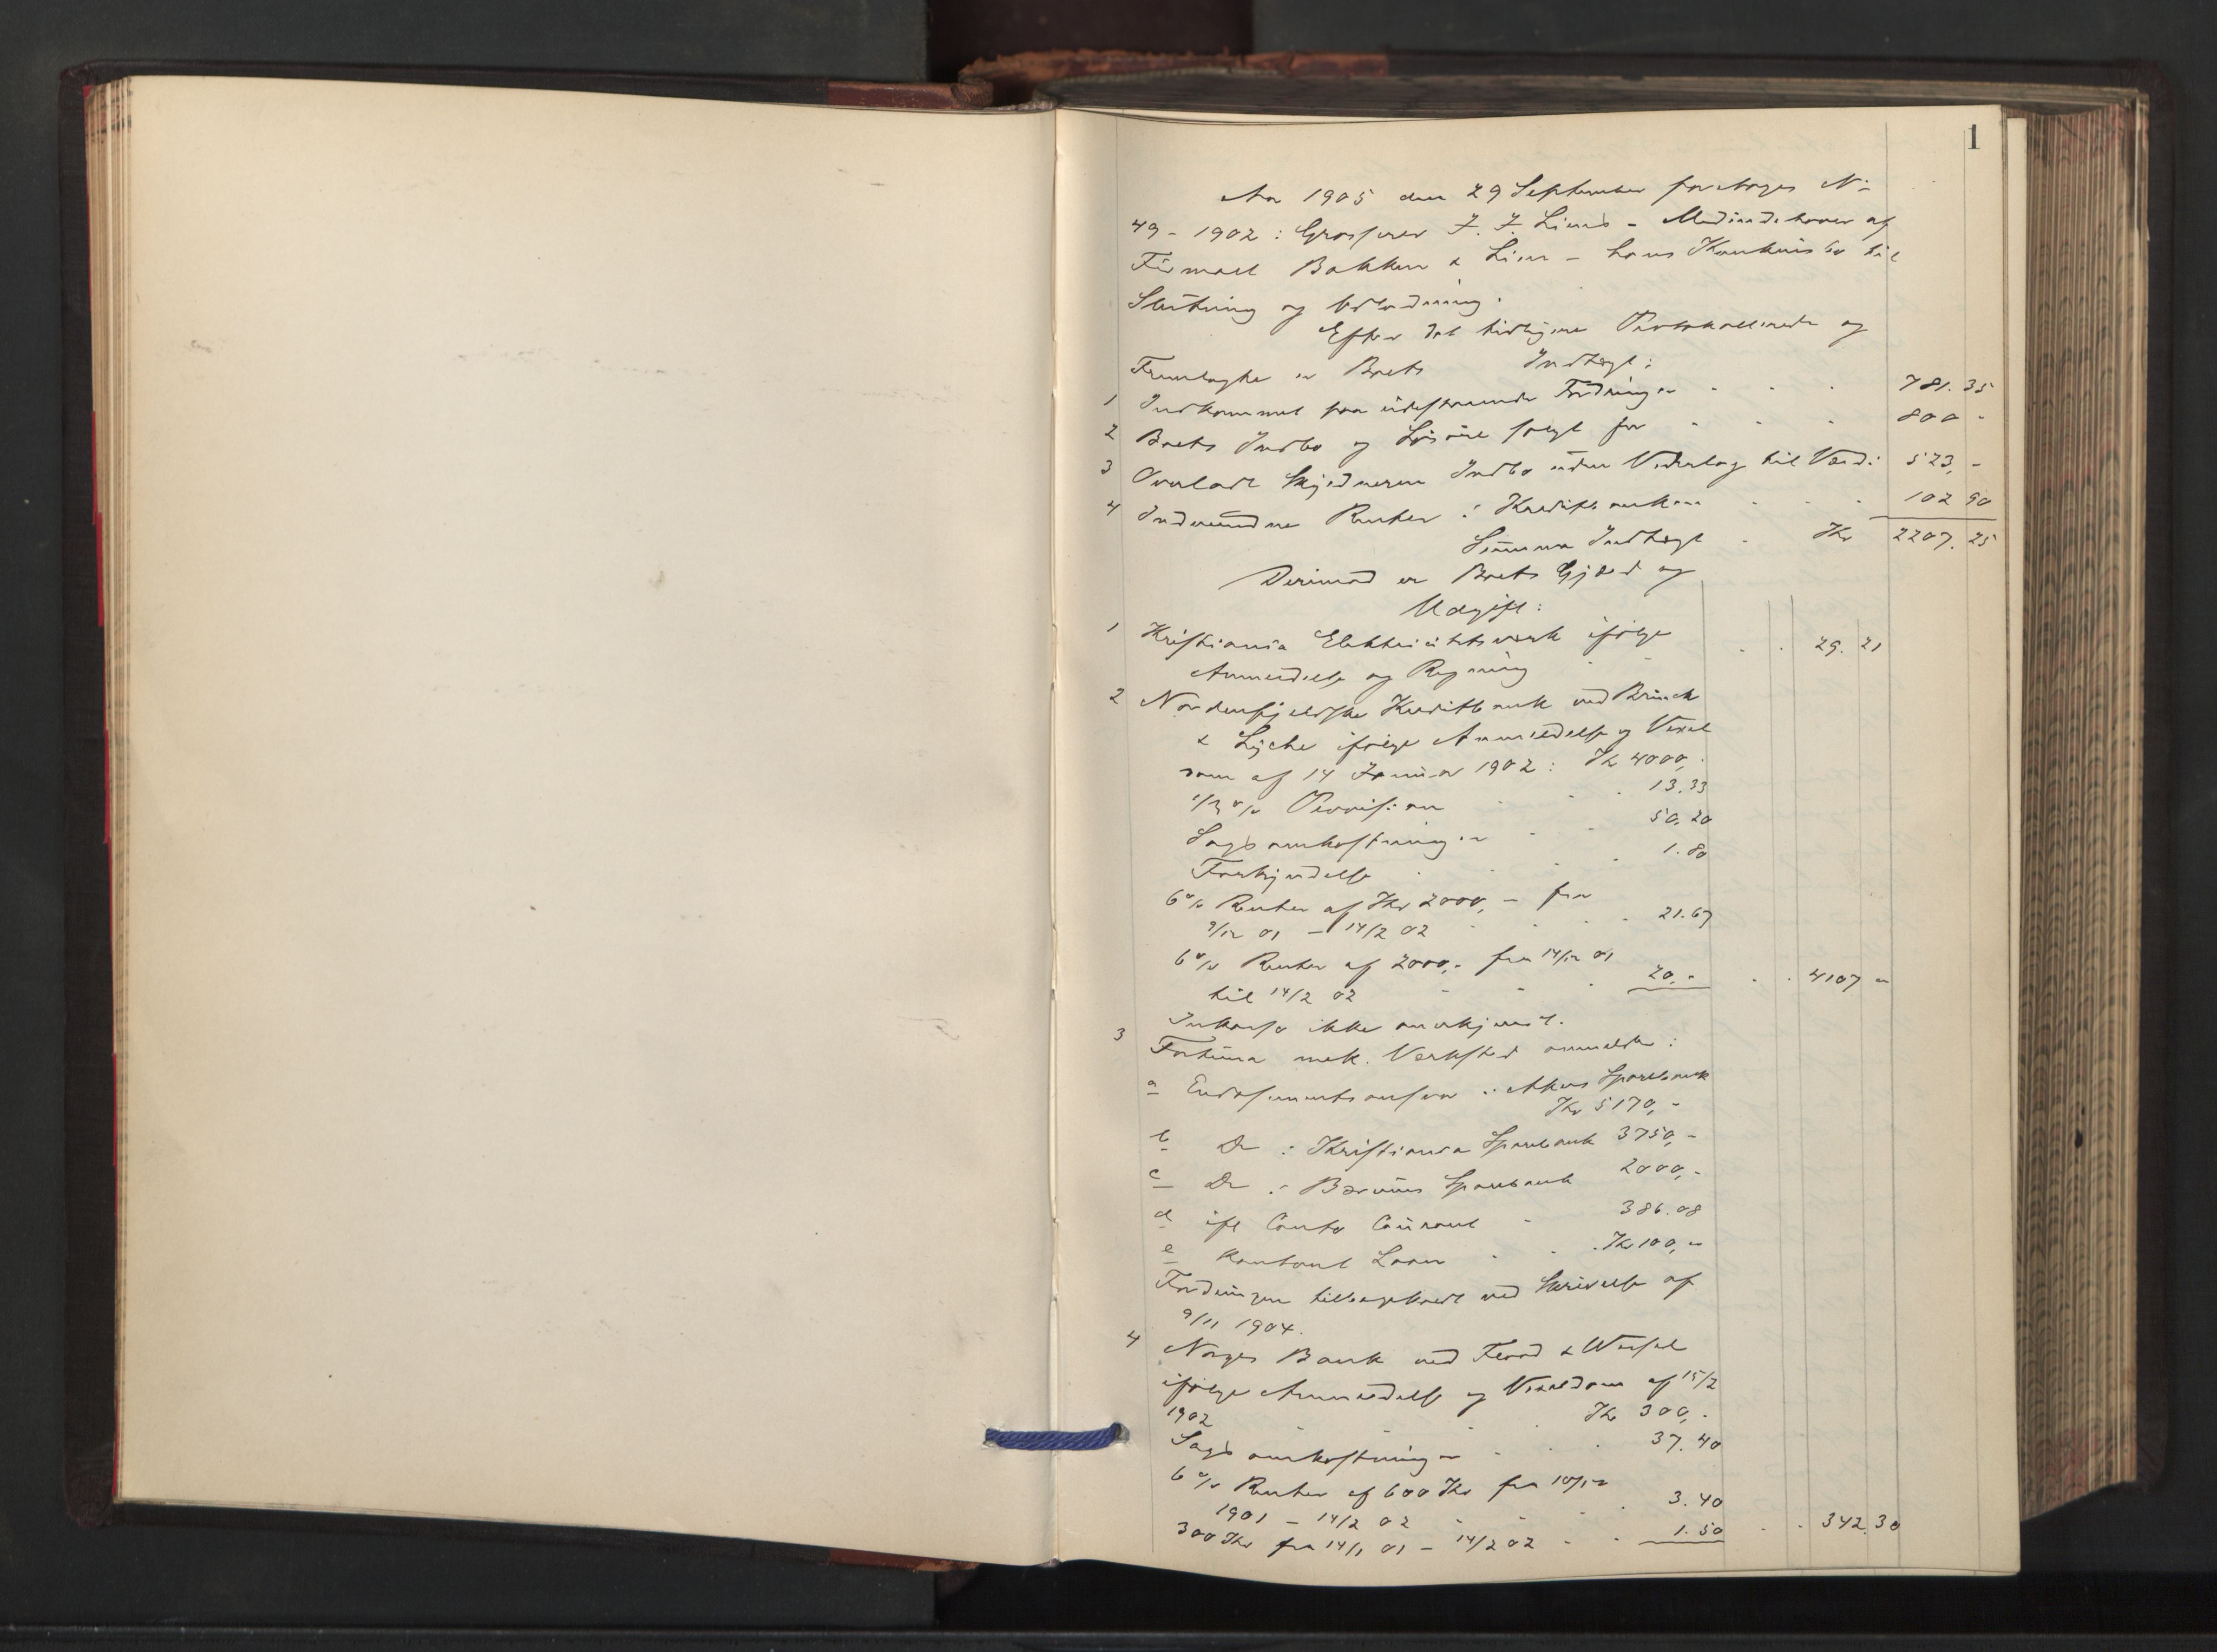 1
Aar 1905 den 29 September foretoges No
49 - 1902: Grosserer J. J. Liens - Medindehaver af
Firmaet Bakken & Lien - hans Konkursbo til
Slutning og Udlodning.
Efter det tidligere Protokollerede og
Fremlagte er Boets Indtægt:
1 Indkommet paa udestaaende Fordringer - - - 781. 35
2 Boets Indbo og Løsøre solgt for - - - 800 -
3 Overladt Skyldneren Indbo uden Vederlag til Værdi 523, -
4 Indvundne Renter i Kreditbanken - - - 102 90
Summa Indtægt - Kr 2207. 25
Derimod er Boets Gjæld og
Udgift:
1 Kristiania Elektricitetsværk ifølge
Anmeldelse og Regning - - 29. 21
2 Nordenfjeldske Kreditbank ved Brinch
& Lyche ifølge Anmeldelse og Vexel
dom af 14 Januar 1902: Kr 4000, -
1/3 % Provision - - 13.33
Sagsomkostninger - - 50.20
Forkyndelse - - 1.80
6% Renter af Kr 2000, - fra
9/12 01 - 14/2 02 - - 21.67
6% Renter af 2000,- fra 14/12 01
til 14/2 02 - - 20,- - - 4107 -
Inkasso ikke anerkjendt.
3 Fortuna mek. Værksted anmeldte:
a Endossementsansvar i Akers Sparebank
Kr 5170, -
b Do i Kristiania Sparebank 3750, -
c Do i Bærums Sparebank 2000, -
d ifl Conto Courant - 386.08
e Kontant Laan - - Kr 100, -
Fordringen tilbagekaldt ved Skrivelse af
9/11 1904.
4 Norges Bank ved Feard & Wessel
ifølge Anmeldelse og Vexeldom af 15/2
1902 - - Kr 300, -
Sagsomkostninger - - 37. 40
6% Renter af 600 Kr fra 10/12
1901 - 14/2 02 - - 3. 40
300 Kr fra 14/1 01 - 14/2 02 - - 1. 50 - - 342. 30